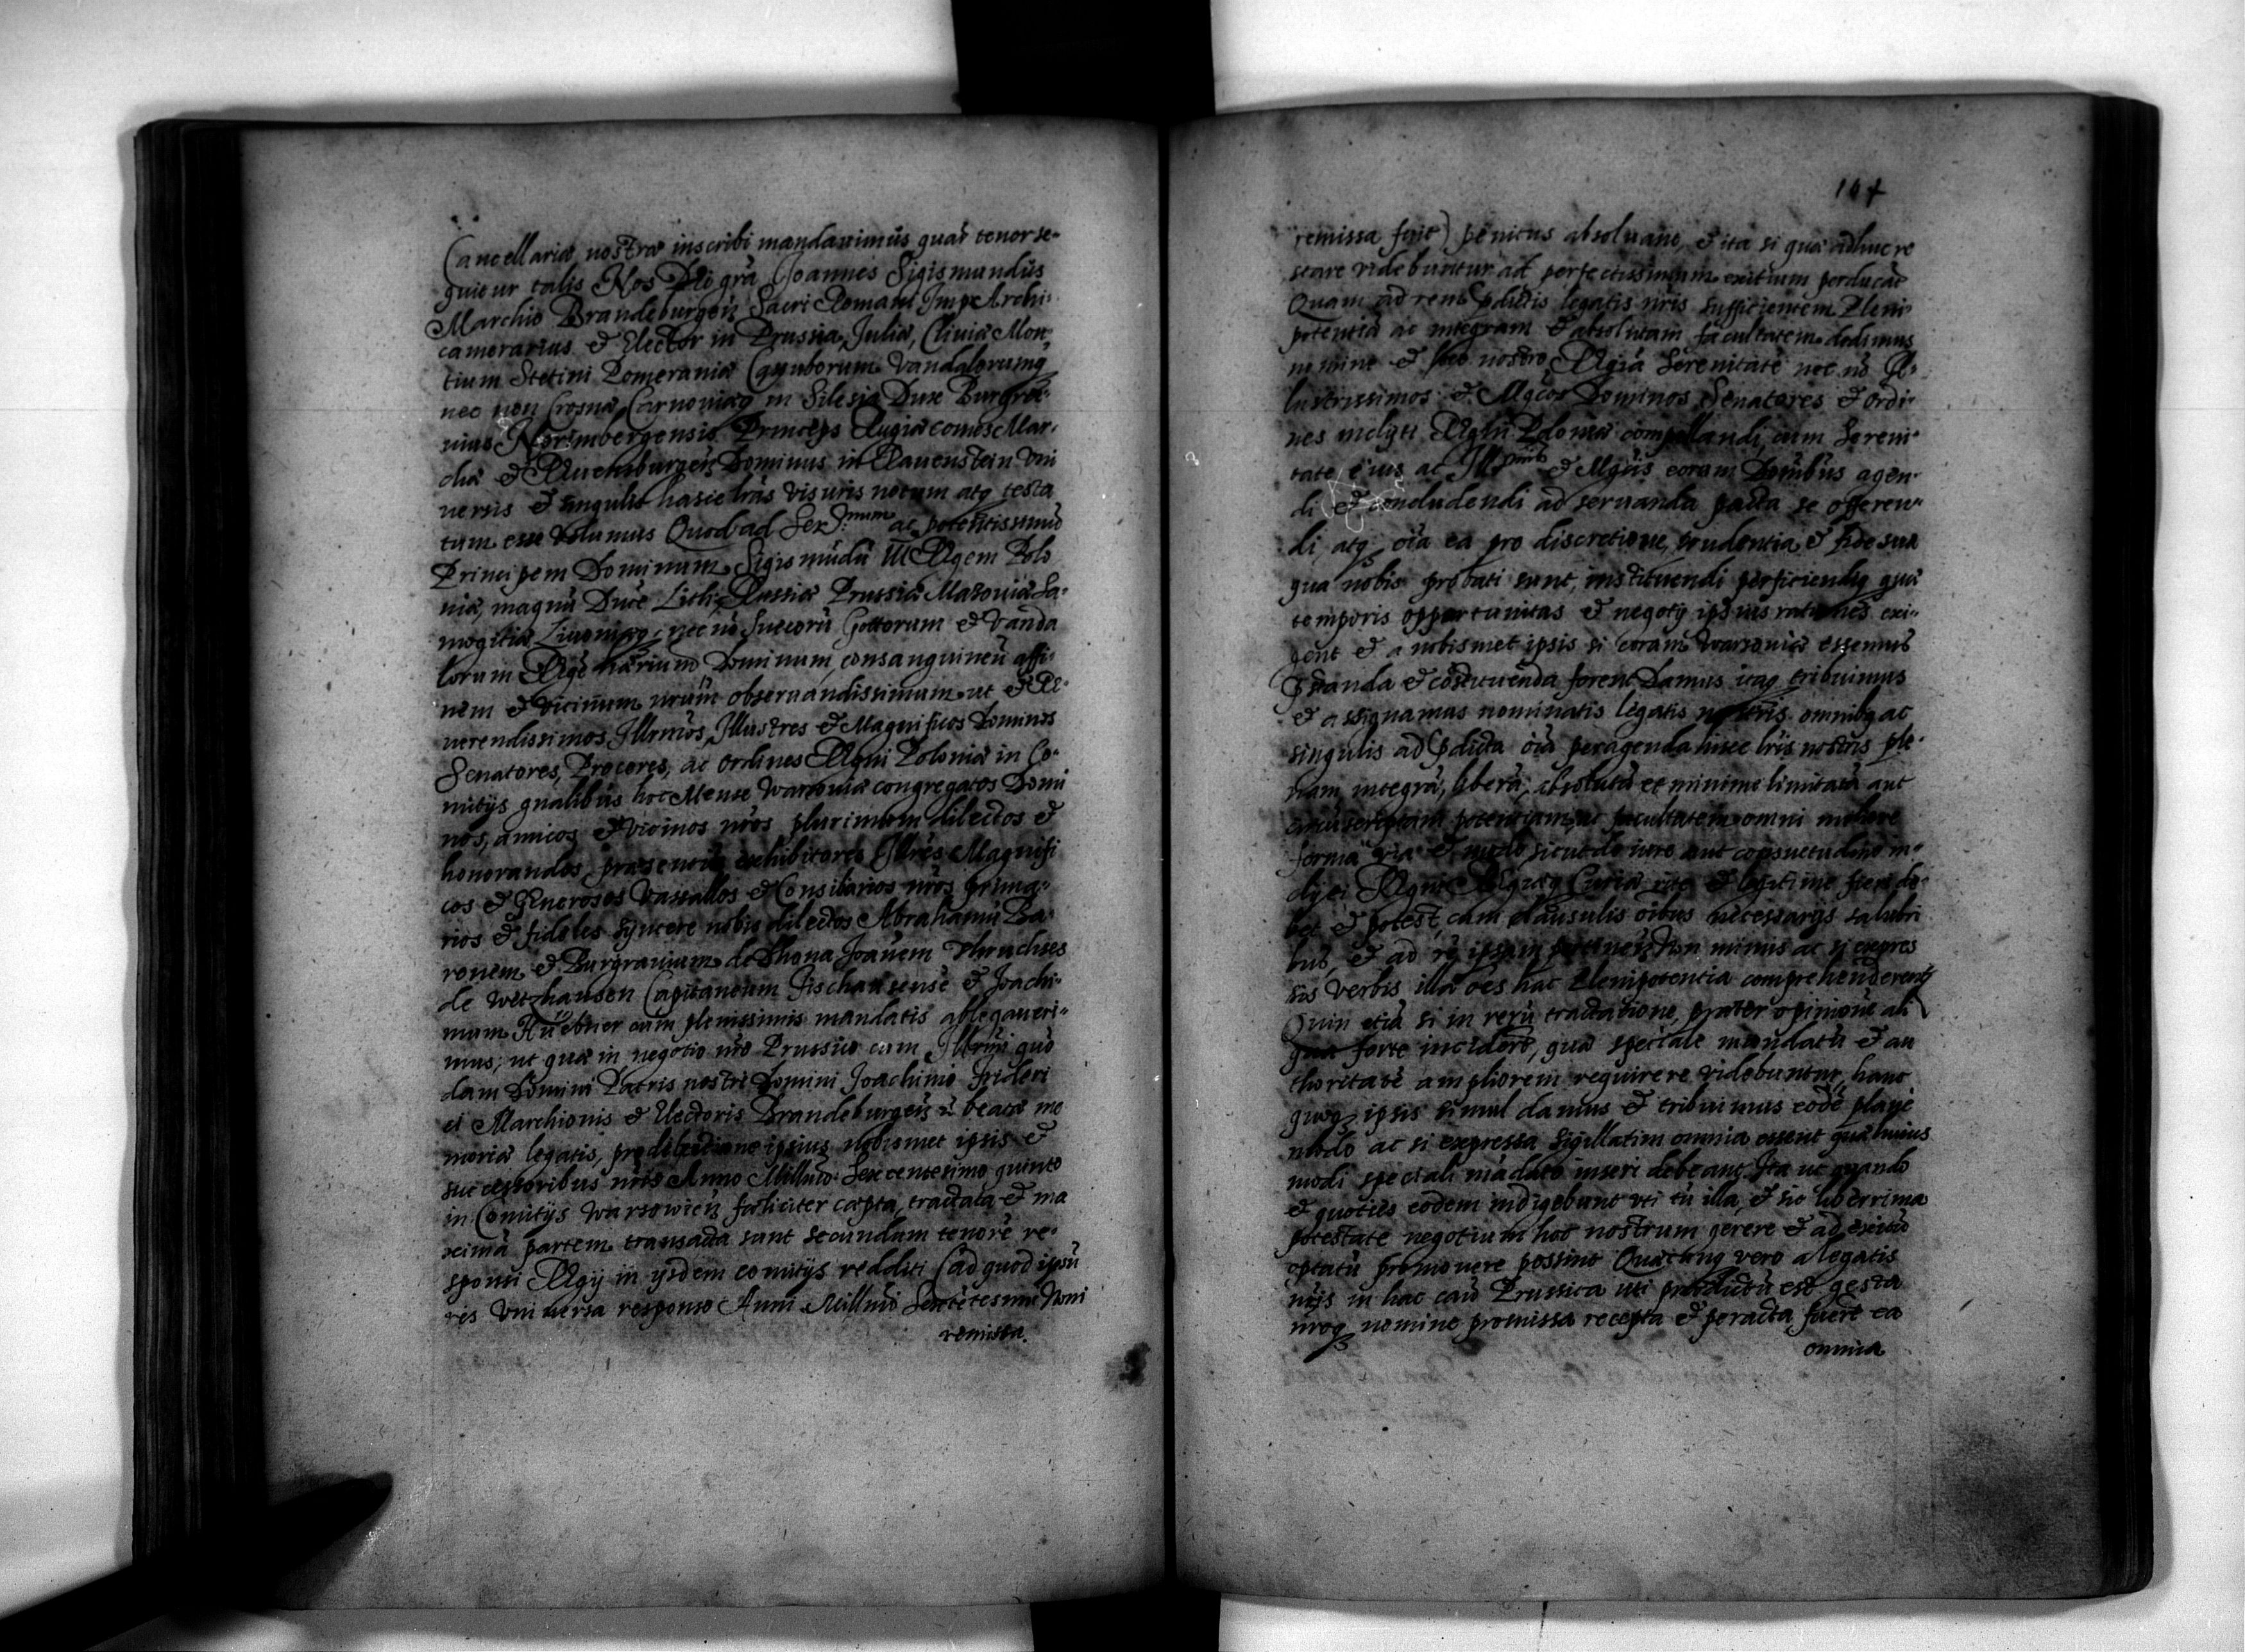 Cancellariæ nostræ inscribi mandauimus quar tenor se-
quitur talis Nos Dei gra Joannes Sigismundus
Marchio Brandeburgen Sacri Romani Imp Archi-
camerarius & Elector in Prussia, Juliæ, Cliuiæ Mon-
tium Stetini Pomeraniæ Cassuborum Vandalorumq
nec non Crosnæ Carnouiæq in Silesia Dux Burgra-
uius Norimbergensis Princeps Rugiæ comes Mar-
chiæ & Rauensburgen Dominus in Rauenstein Vni
uersis & singulis hasce lras visuris notum atq testa
tum esse volumus Quod ad Ser.mum ac potentissimū
Principem Dominum Sigismūdū III Regem Polo
niæ, magnū Ducē Lith: Russiæ Prussiæ Mazouiæ Sa-
mogitiæ Liuoniæq; nec nō Suecorū Gottorum & Vanda
lorum Regē hærium Dominum, consanguineū affi-
nem & vicinum nrum observandissimum ut & Re-
uerendissimos Illrmos, Illustres & Magnificos Dominos
Senatores, Proceres, ac ordines Regni Poloniæ in Co-
mitijs gnalibus hoc Mense Warsouiæ congregatos Domi
nos, amicos & vicinos nros plurimum dilectos &
honorandos, præsentiū exhibitores Illres Magnifi
cos & Generosos Vassallos & Consiliarios nros prima-
rios & fideles syncere nobis dilectos Abrahamū Ba-
ronem & Burgrauium de Dhona Joanem Thruchses
de Wetzhausen Capitaneum Fischausensē & Joachi-
mum Hübner cum plenissimis mandatis ablegaueri-
mus; ut quæ in negotio nro Prussico cum Illrmi quō
dam Domini Patris nostri Domini Joachimi Frideri
ci Marchionis & Electoris Brandeburgen beatæ me
moriæ legatis, pro dilectione ipsius nobismet ipsis &
successoribus nris Anno Millmo Sexcentesimo quinto
in Comitijs Warsowien fæliciter cæpta, tractata & ma
ximā partem transacta sunt secundum tenorē re-
sponsi Regij in ysdem comitijs redditi (ad quod ipsū
res vniuersa responso Anni Millmi Sexcētesimi Noni
remissa.
164
remissa fuit) penitus absoluant, & ita si quæ adhuc re
stare videbuntur ad perfectissimum exitium perducāt
Quam ad rem pdictis legatis nris sufficientem Pleni-
potentiā ac integram & absolutam facultatem dedimus
nomine & loco nostro Regiā Serenitatē nec nō Il-
lustrissimos & Mgcos Dominos Senatores & ordi-
nes inclyti Regni Poloniæ compellandi, cum Sereni-
tate eius ac & Mgcis eorum Donibus agen-
di & concludendi ad seruanda pacta se offeren-
di, atq oīa ea pro discretione, prudentia & fide sua
qua nobis probati sunt, instituendi perficiendiq quæ
temporis opportunitas & negotij ipsius rationes exi-
gent & a nobismet ipsis si coram Warsouiæ essemus
& cōstituenda forent Damus itaq tribuimus
& assignamus nominatis legatis nostris omnibq ac
singulis ad pdicta oīa peragenda hisce lris nostris ple-
nam integrā, liberā, absolutā et minime limitatā aut
circumscriptam potentiam ac facultatem omni meliore
forma via & modo sicut de iure aut consuetudine in-
clyti Regni Regiæq Curiæ rite & legitime fieri de-
bet & potest, cum clausulis oibus necessarijs salubri
bus, & ad rē ipsam pertinen Non minus ac si expres
sis verbis illa oes hac Plenipotentia comprehenderent
Quin etiā si in rerū tractatione, præter opinionē ali
qua forte inciderēt, quæ speciale mandatū & au
thoritatē ampliorem requirere videbuntur, hanc
quoq ipsis simul damus & tribuimus eodē plane
modo ac si expressa sigillatim omnia essent quæ huius
modi speciali mādato inseri debeant, Ita ut quando
& quoties eodem indigebunt vti tū illa, & sic liberrima
potestate negotium hoc nostrum gerere & ad exitū
optatū promouere possint Quæcunq vero a legatis
nris in hac causa Prussica uti prædictū est gesta
nroq nomine promissa recepta & peracta fuerīt ea
omnia